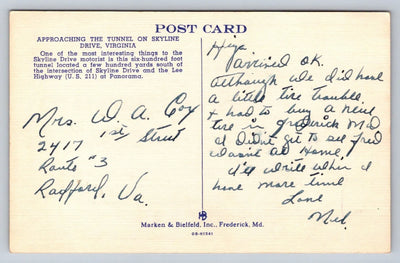 POST CARD
APPROACHING THE TUNNEL ON SKYLINE
DRIVE, VIRGINIA
One of the most interesting things to the
Skyline Drive motorist is this six-hundred foot
tunnel located a few hundred yards south of
the intersection of Skyline Drive and the Lee
Highway (U. S. 211) at Panorama.
Mrs. W. A. Coy
2417 1st Street
Route #3
Radford, Va.
Hiya
arrived OK.
although we did have
a little tire trouble.
+ had to buy a new
tire in Frederick Md
I didn't get to see Fred
wasn't at Home.
I'll write when I
have more time
Love
Mel.
Marken & Bielfeld, Inc., Frederick, Md.